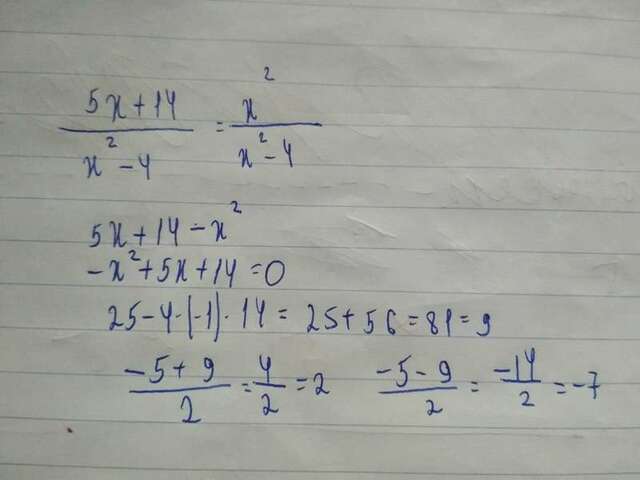 (5x+14)/(x²-4) = x²/(x²-4)
5x+14-x²
-x²+5x+14=0
25-4·(-1)·14= 25+56=81=9
(-5+9)/2=4/2=2 (-5-9)/2=-14/2=-7